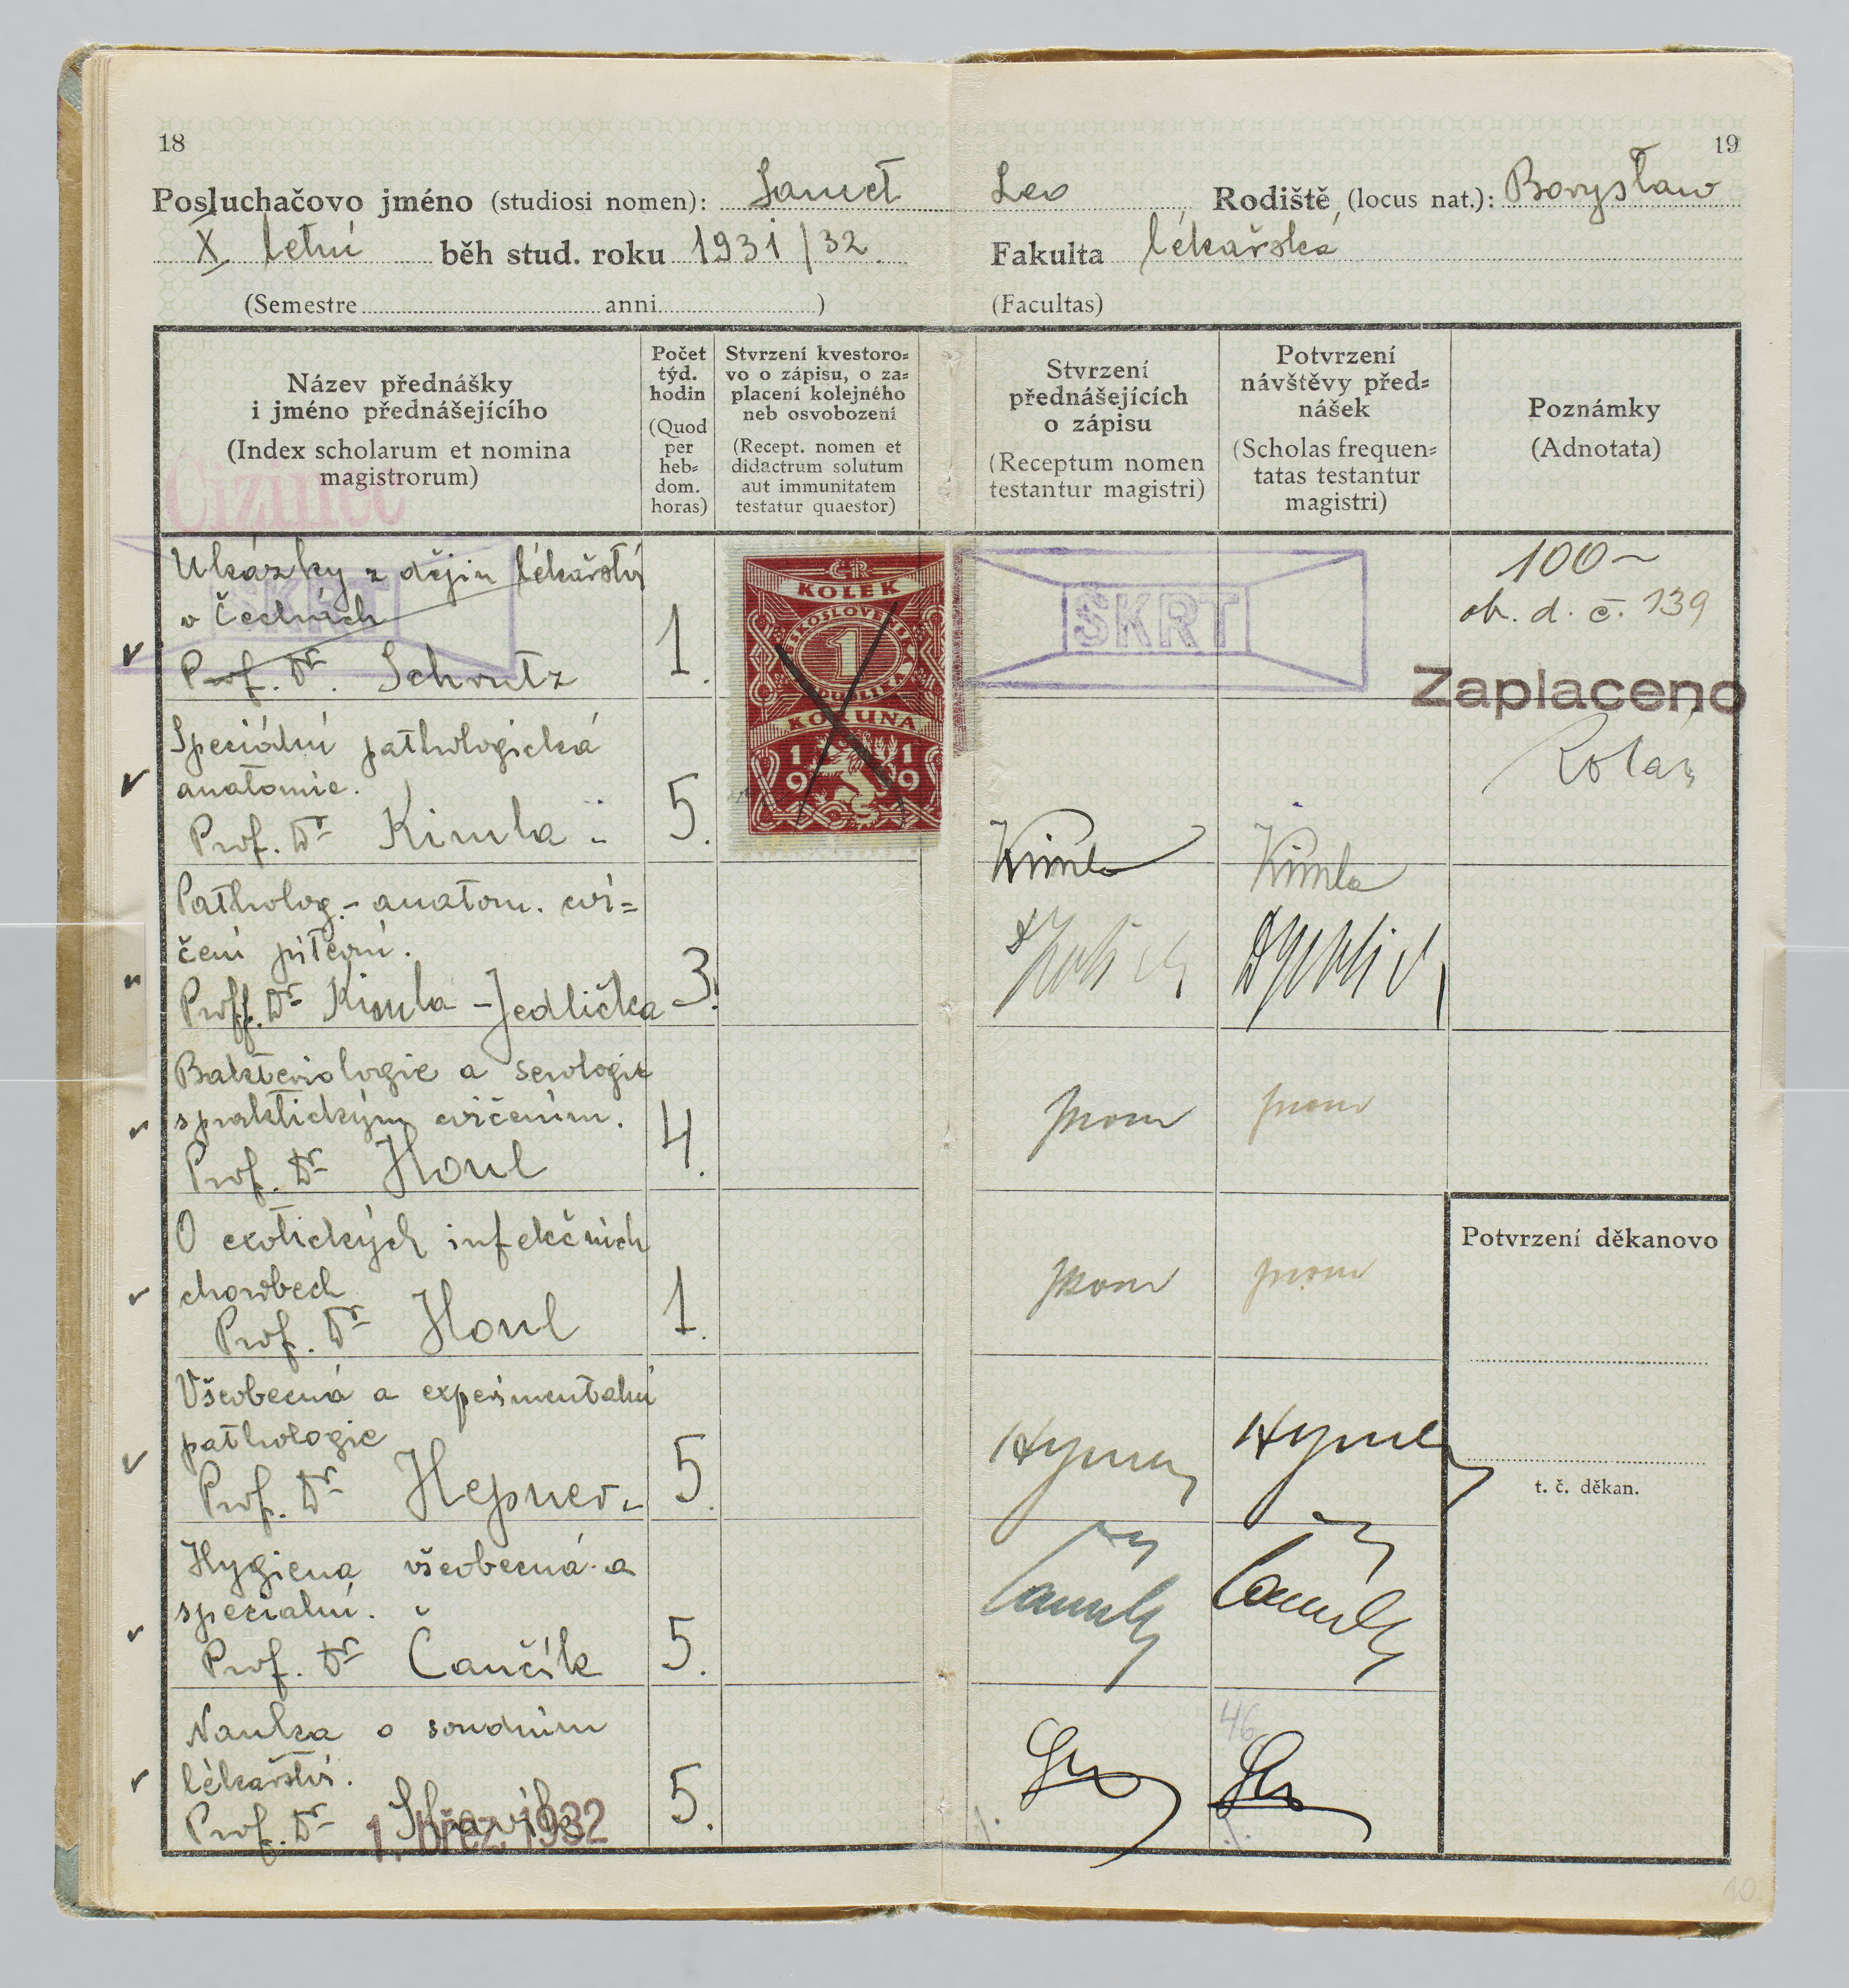 18
19
Posluchačovo jméno (studiosi nomen): Samet Leo Rodiště (locus nat.): Borysław
X letní běh stud. roku 1931/32. Fakulta lékařská
(Semestre anni ) (Facultas)
Název přednášky
i jméno přednášejícího
(Index scholarum et nomina
magistrorum)
Cizinec
Počet
týd.
hodin
(Quod
per
heb=
dom.
horas)
Stvrzení kvestoro=
vo o zápisu, o za=
placení kolejného
neb osvobození
(Recept. nomen et
didactrum solutum
aut immunitatem
testatur quaestor)
Stvrzení
přednášejících
o zápisu
(Receptum nomen
testantur magistri)
Potvrzení
návštěvy před=
nášek
(Scholas frequen=
tatas testantur
magistri)
Poznámky
(Adnotata)
Ukázky z dějin lékařství
v Čechách
Prof. Dr. Schrutz 1.
SKRT
SKRT
ČR
KOLEK
ČESKOSLOVENSKÁ
1
REPUBLIKA
KORUNA
19 19
100~
ob. d. č. 139
Zaplaceno
Kolář
Speciální pathologická
anatomie.
Prof. Dr Kimla 5.
Kimla Kimla
Patholog.- anatom. cvi=
čení pitevní.
Proff. Dr Kimla - Jedlička 3.
Bakteriologie a serologie
s praktickým cvičením.
Prof. Dr Honl 4.
O exotických infekčních
chorobech
Prof. Dr Honl 1.
Potvrzení děkanovo
Všeobecná a experimentalní
pathologie
Prof. Dr Hepner 5.
t. č. děkan.
Hygiena všeobecná a
specialní.
Prof. Dr Čančík 5.
Nauka o soudním
lékařství.
Prof. Dr 5.
46
1. břez. 1932
10